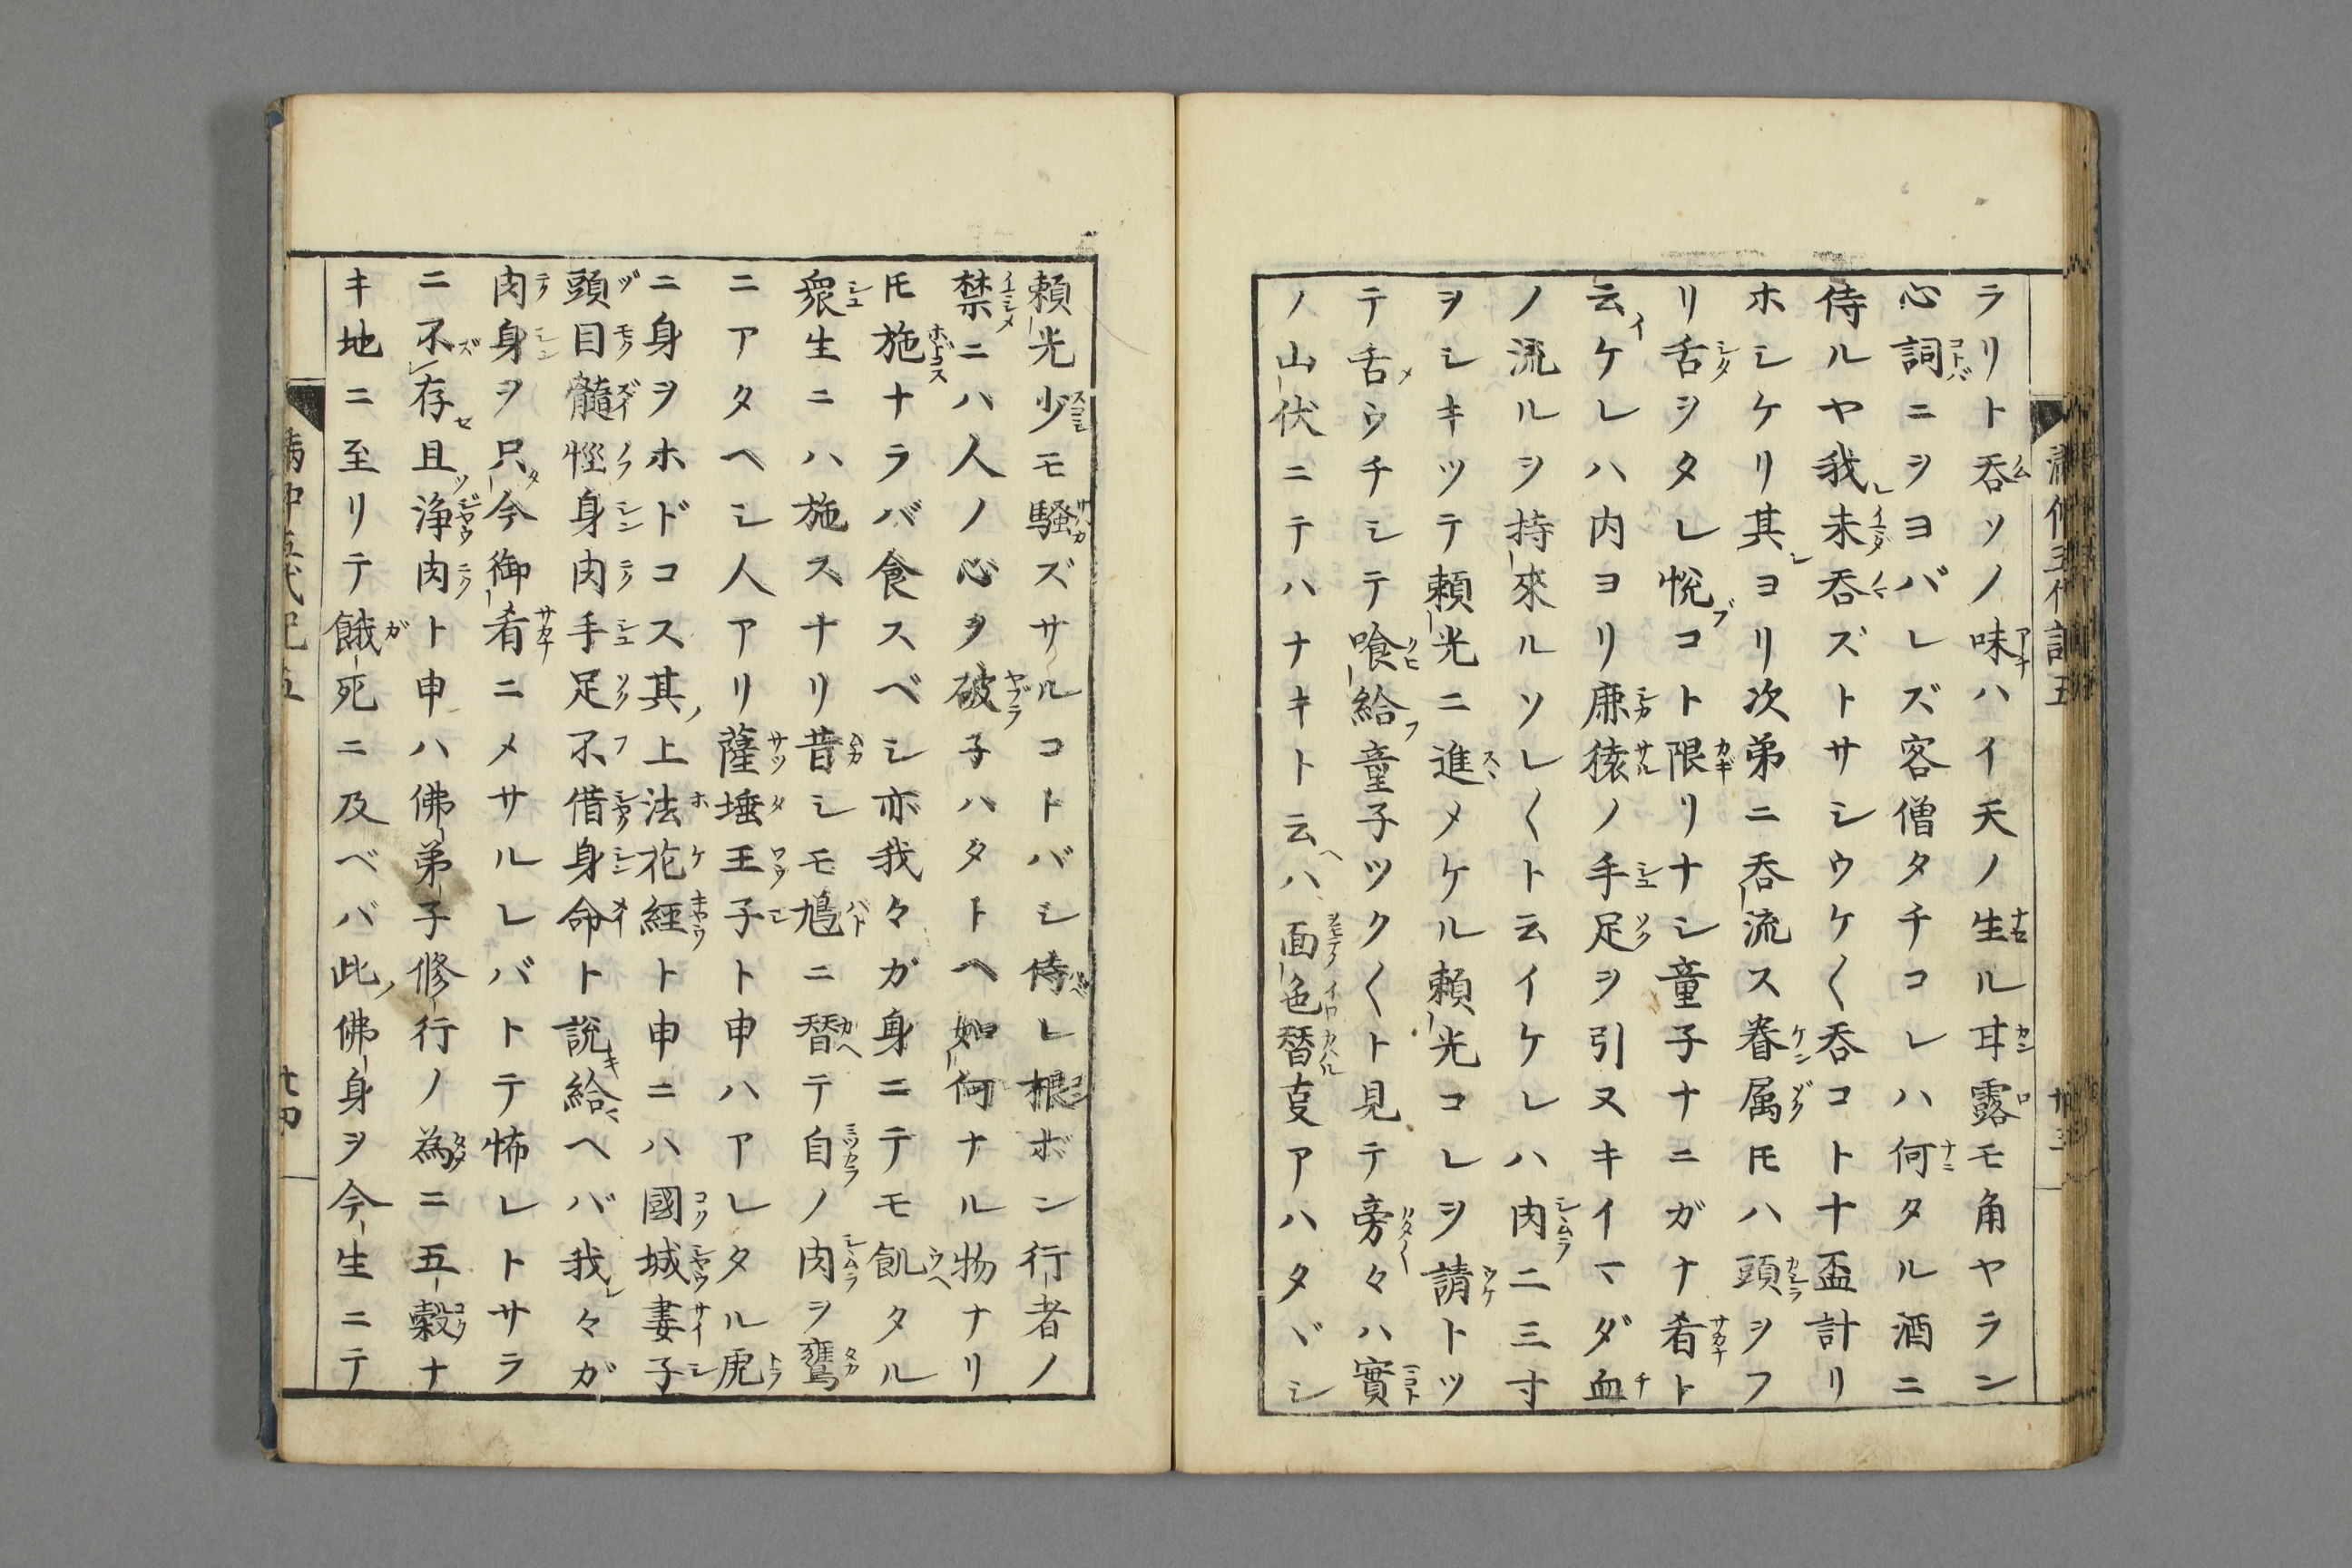 ラリト呑ソノ味ハイ天ノ生ル耳露モ角ヤラン
心詞ニヲヨバレズ客僧タチコレハ何タル酒ニ
侍ルヤ我未呑ズトサシウケ〱呑コト十盃計リ
ホシケリ其ヨリ次第ニ呑流ス眷属𪜈ハ頭ヲフ
リ舌ヲタレ悦コト限リナシ童子ナニガナ肴ト
云ケレハ内ヨリ麃猿ノ手足ヲ引ヌキイマダ血
ノ流ルヲ持來ルソレ〱ト云イケレハ肉二三寸
ヲシキツテ賴光ニ進メケル賴光コレヲ請トツ
テ舌ウチシテ喰給童子ツク〱ト見テ旁々ハ實
ノ山伏ニテハナキト云ハ面色替叓アハタヾシ
賴光少モ騷ズサルコトバシ侍レ根ボン行者ノ
禁ニハ人ノ心ヲ破子ハタトヘ如何ナル物ナリ
𪜈施ナラバ食スベシ亦我々ガ身ニテモ飢タル
衆生ニハ施スナリ昔シモ鳩ニ替テ自ノ肉ヲ鷹
ニアタヘシ人アリ薩埵王子ト申ハアレタル虎
ニ身ヲホドコス其上法花經ト申ニハ國城妻子
頭目髓悩身肉手足不借身命ト説給ヘバ我々ガ
肉身ヲ只今御肴ニメサルレバトテ怖レトサラ
ニ不存且浄肉ト申ハ佛弟子修行ノ為ニ五穀ナ
キ地ニ至リテ餓死ニ及ベバ此佛身ヲ今生ニテ